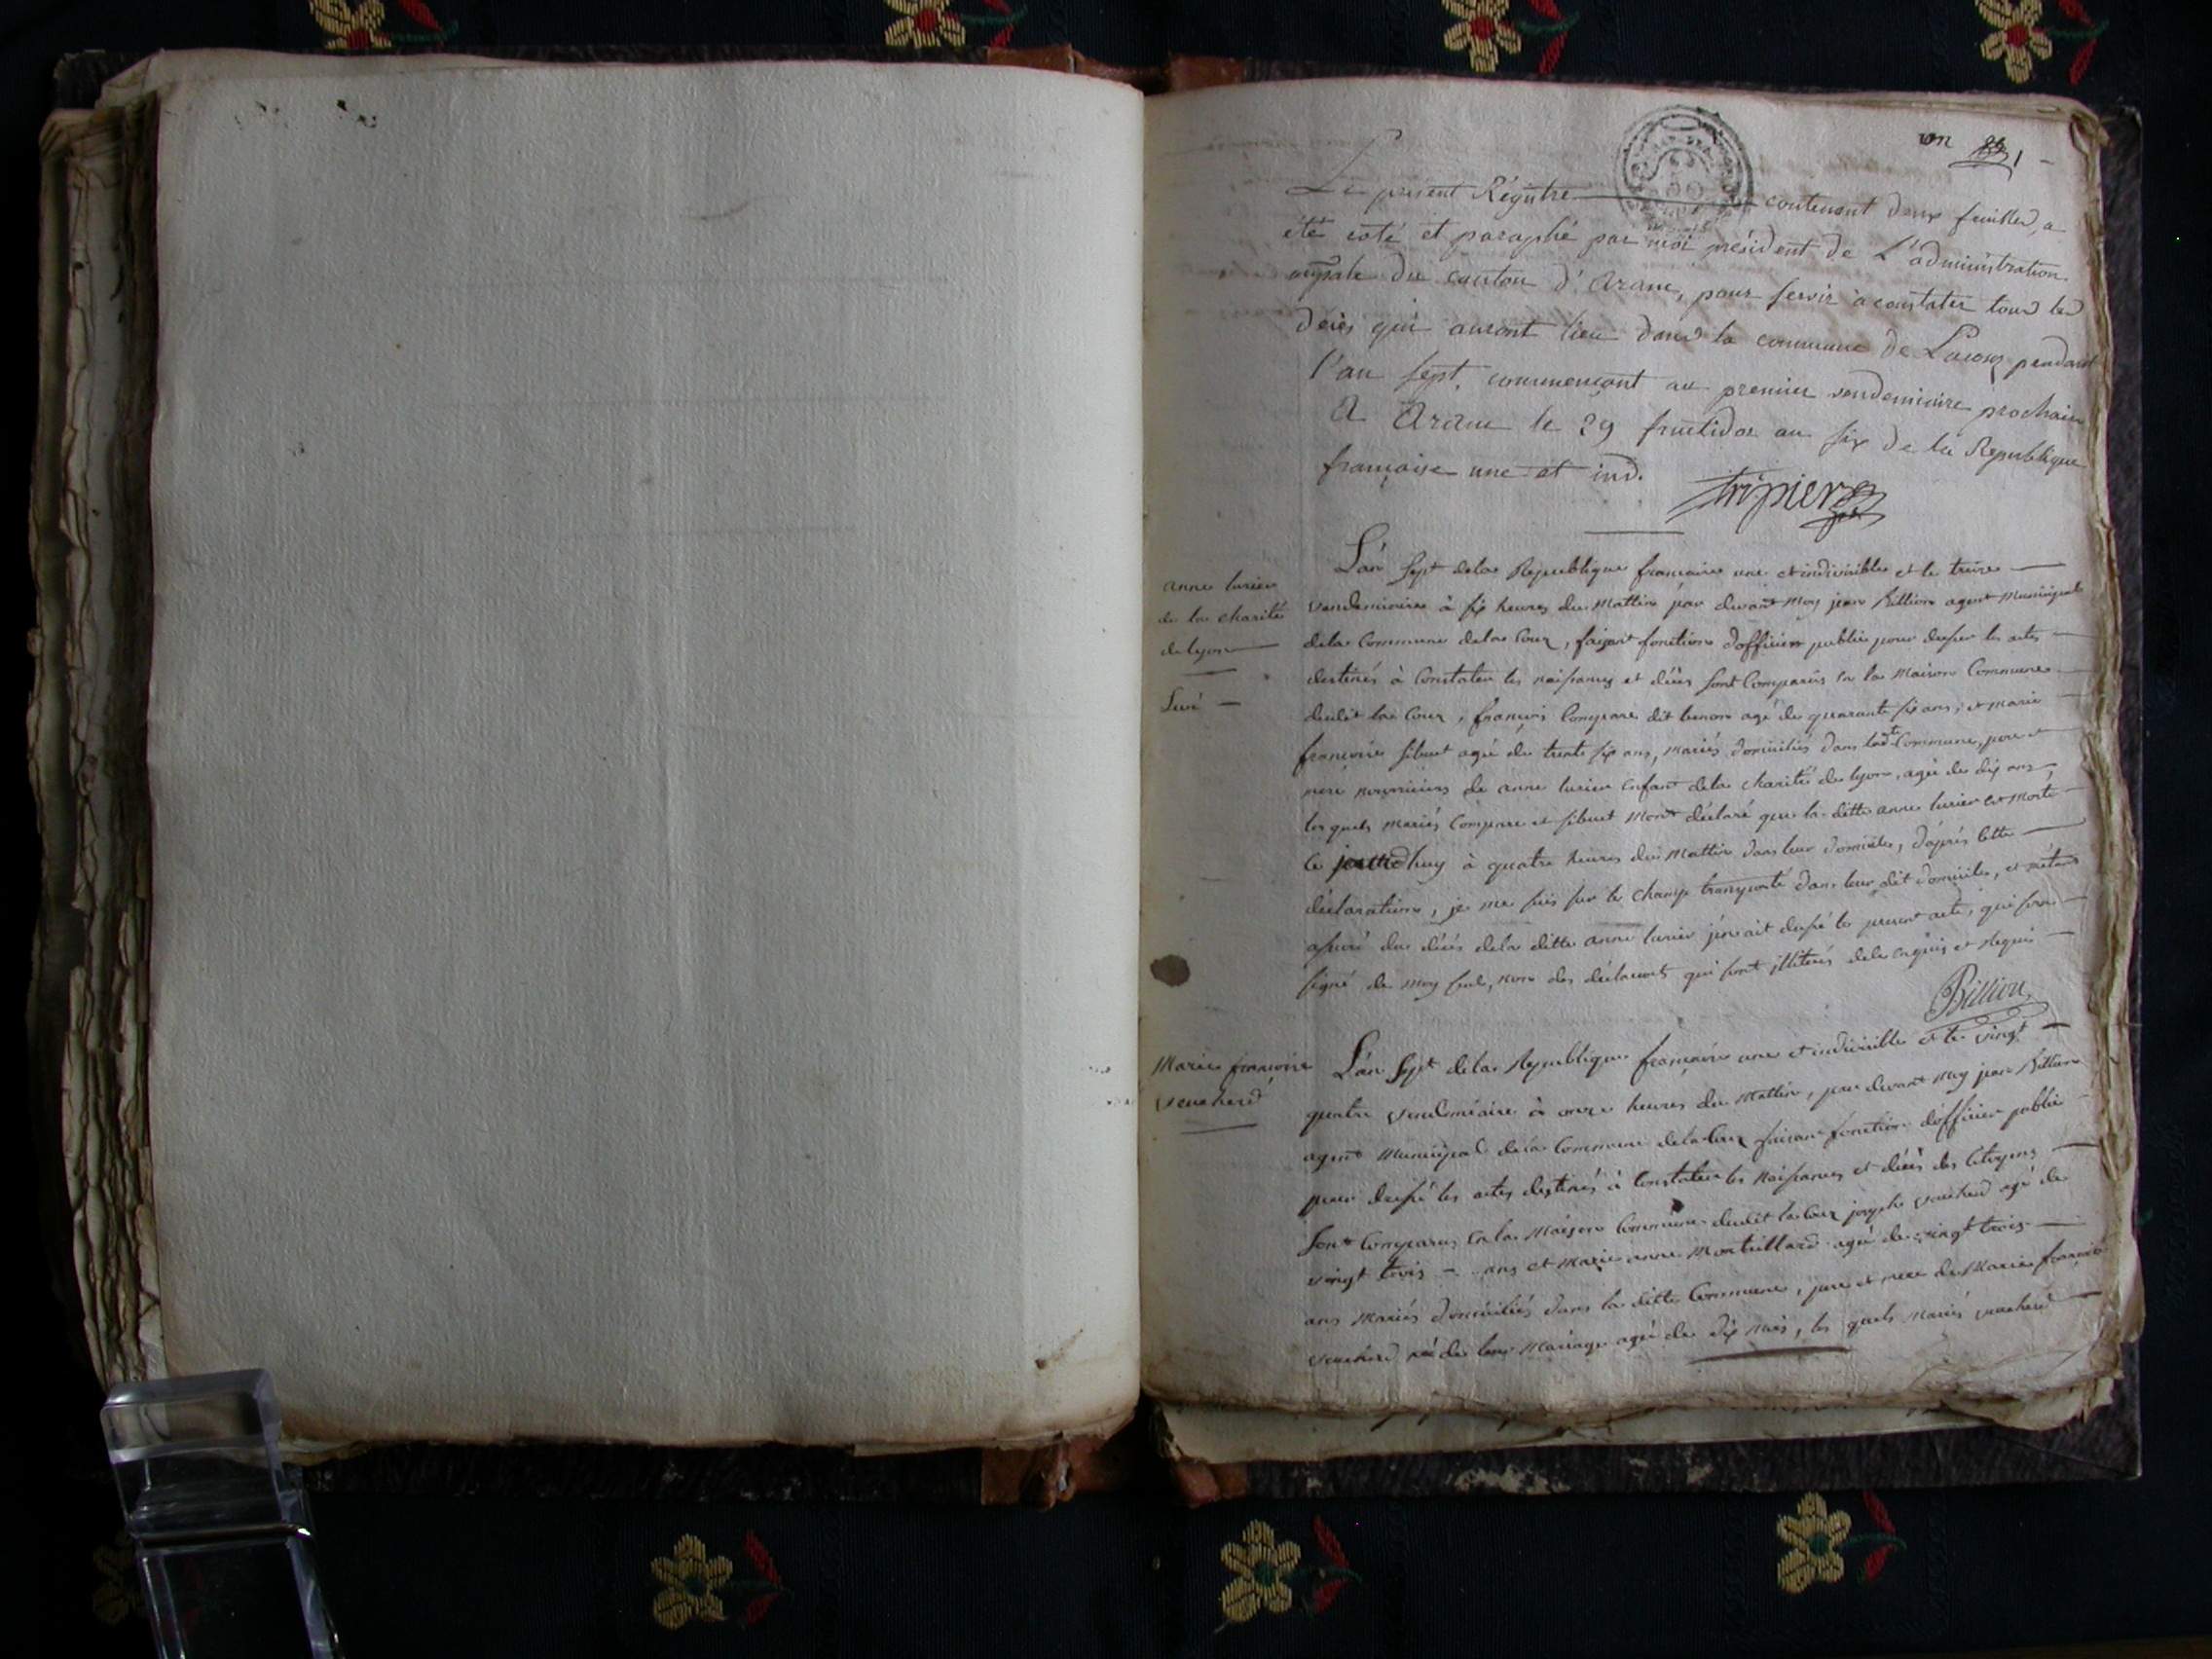 un
Le présent Régistre contenant deux feuilles, a
été coté et paraphé par moi président de L'administration
mpale du canton d'Aranc, pour servir à constater tous les
décès qui auront lieu dans la commune de Lacoux pendant
l'an sept, commençant au premier vendemiaire prochain
A Aranc le 29 fructidor an six de la Republique
françoise une et ind.
tripier
L'an Sept dela Republique francaise une et indivisible et le treize
anne lurier
de la charité
de lyon
vendemiaire à six heures du Mattin par devant Moy jean Billion agent Municipal
dela Commune dela Coux, faisant fonction d'officier public pour dresser les actes
destinés à Constater les naissances et décès sont Comparus en la Maison Commune
dudit la Coux, françois Compare dit benon agé de quarante six ans, et marie
françoise sibuet agée de trente six ans, mariés domiciliés dans ladte Commune, pere et
mere nourriciers de anne lurier enfant dela charité de lyon, agée de dix ans,
lesquels mariés Compare et sibuet Mont déclaré que la ditte anne lurier est Morte
ce jourdhuy à quatre heures du Mattin dans leur domicile, d'après cette
déclaration, je me suis sur le champ transporté dans leur dit domicile, et m'étant
assuré du décès dela ditte anne lurier j'en ait dressé le present acte, qui sera
signé de moy seul, non des déclarants qui sont illiterés dela enquis et requis
Billion
Marie francoise
vucherd
L'an Sept dela Republique françoise une et indivisible et le vingt
quatre vendemiaire à onze heures du Mattin, par devant Moy jean Billion
agent Municipal dela Commune dela Coux faisant fonction d'officier public
pour dressé les actes destinés à Constater les Naissances et décès des Citoyens
sont Comparus en la Maison Commune dudit la Coux joseph vucherd agé de
vingt trois ans et Marie anne Montillard agée de vingt trois
ans Mariés domiciliés dans la ditte Commune, pere et mere de Marie francoise
vucherd née de leur Mariage agée de dix mois, les quels Mariés vucherd